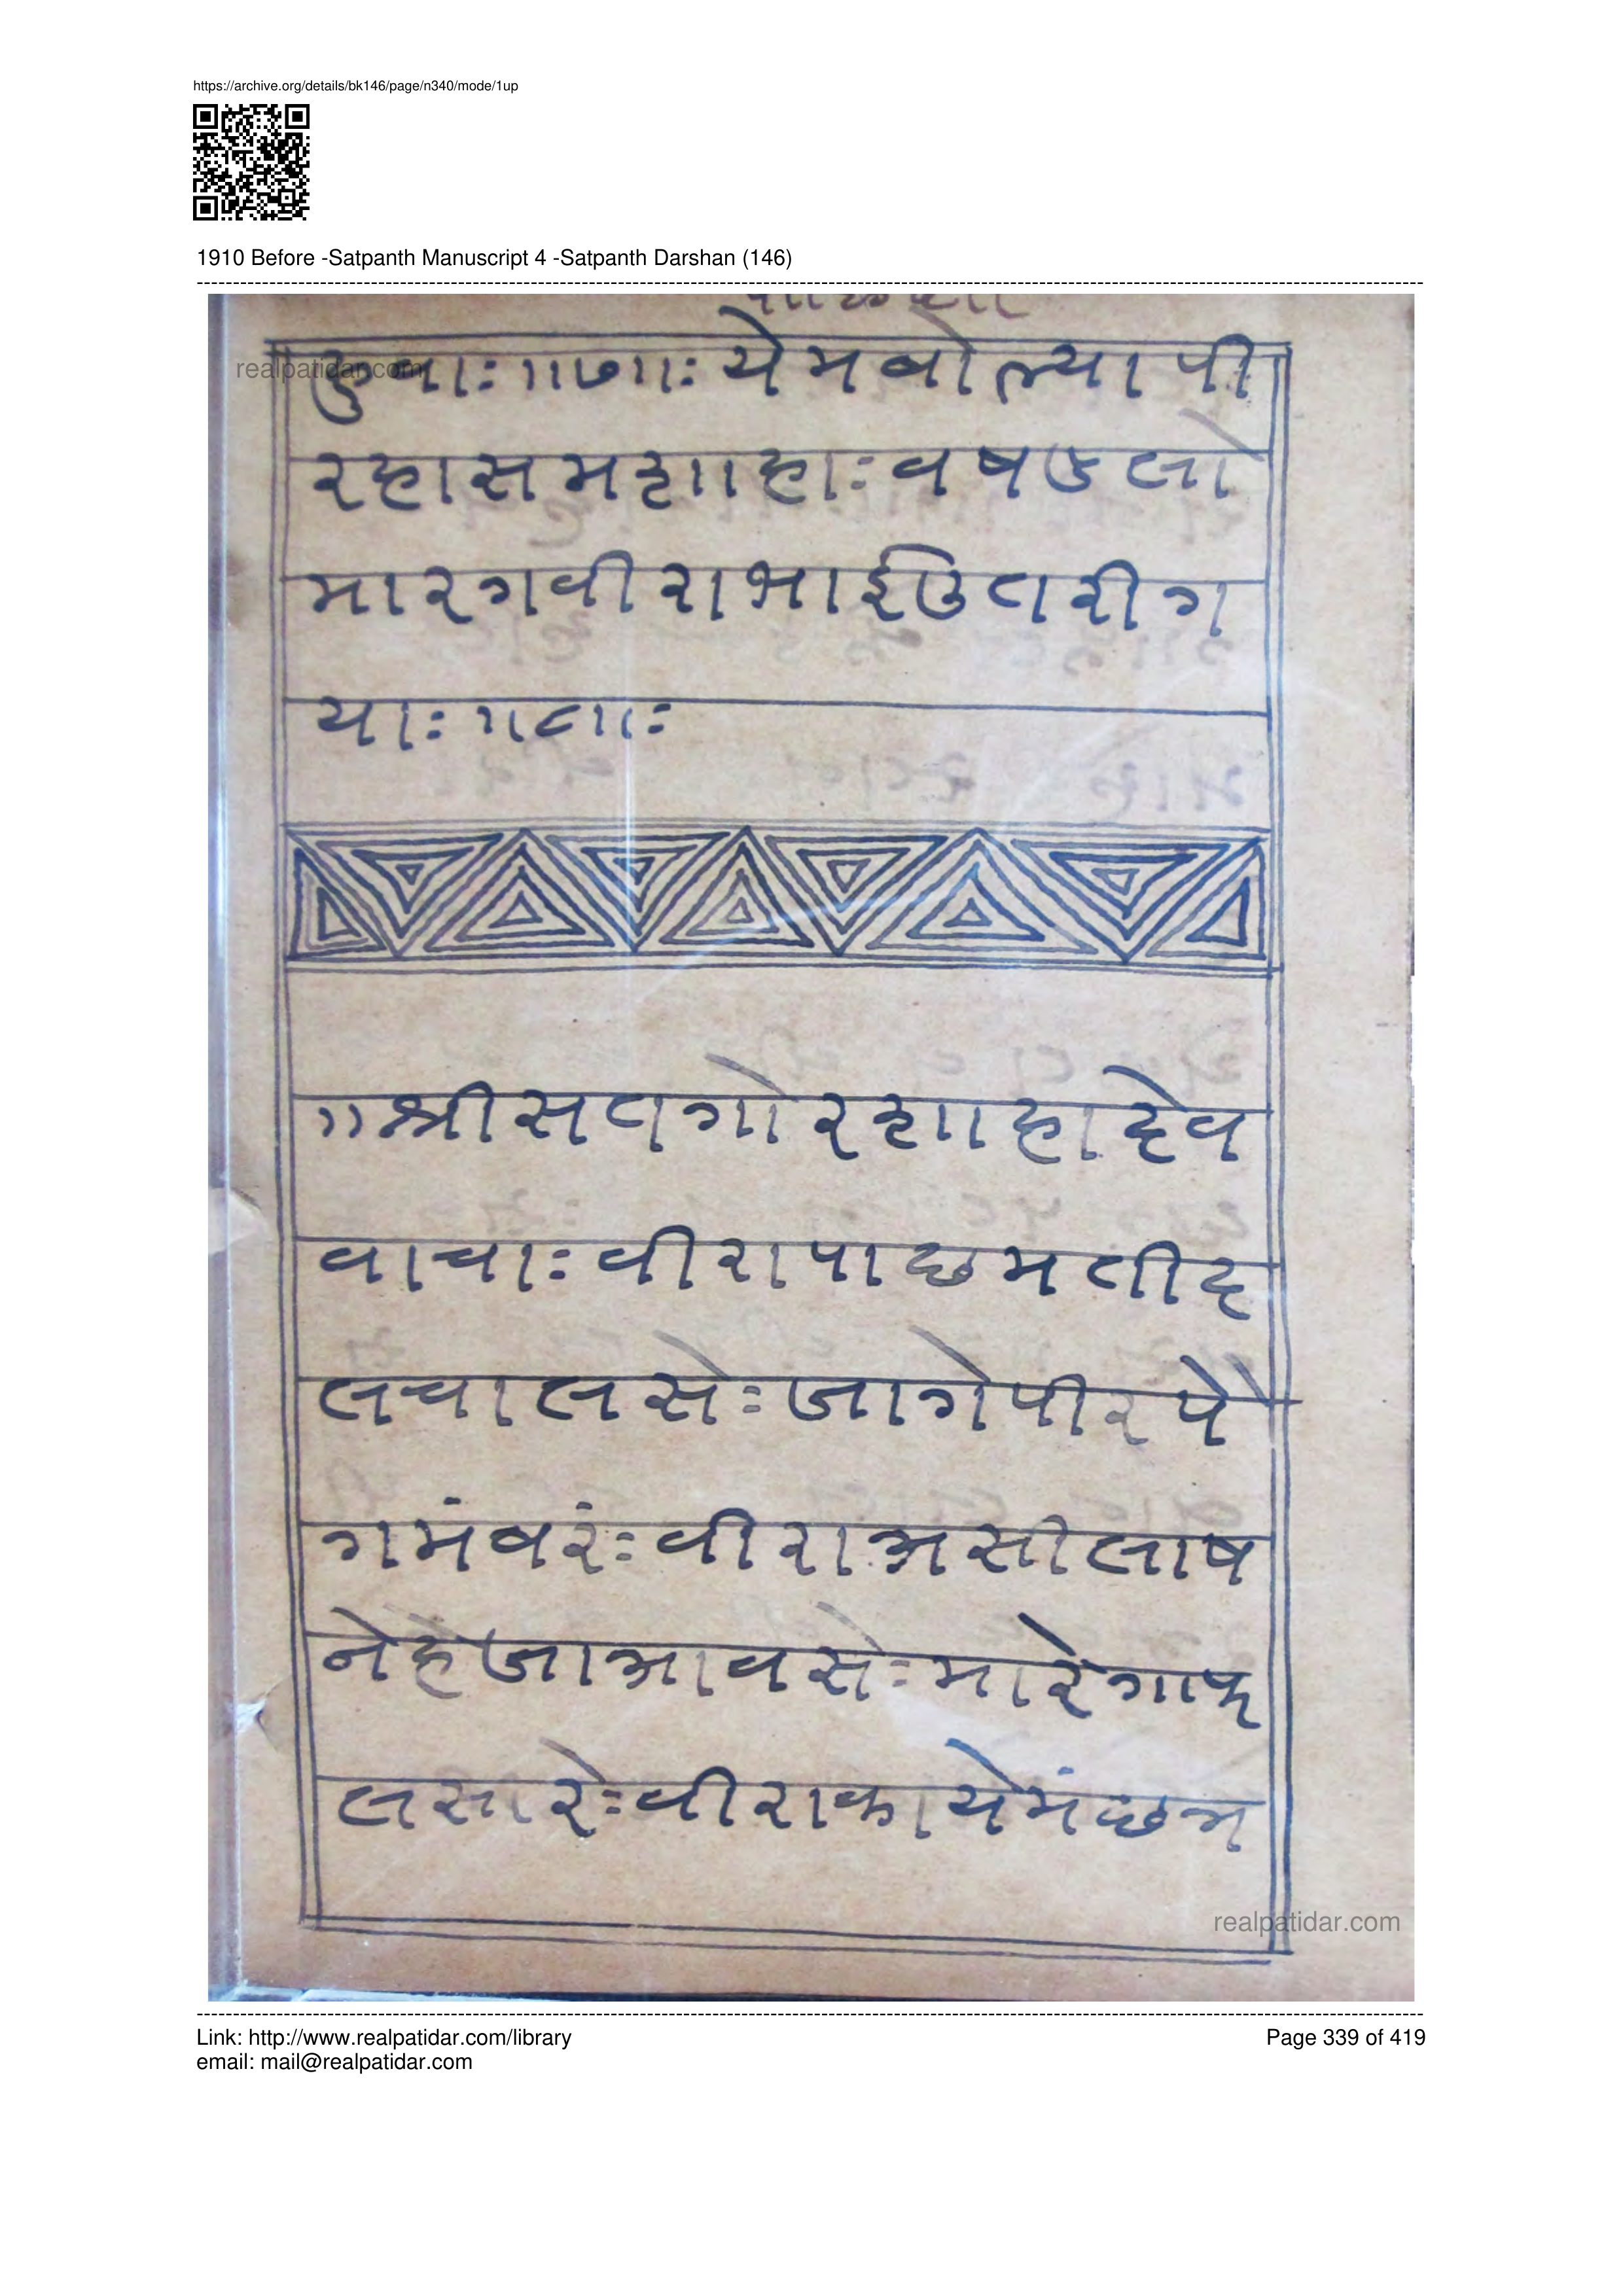 https://archive.org/details/bk146/page/n340/mode/1up
1910 Before -Satpanth Manuscript 4 -Satpanth Darshan (146)
realpatidar.com
॥७॥ः येमबोल्यापी
रहासमशाहाः वषउलो
मारगवीराभाईउतरीग
याः ॥८॥ः
॥श्रीसतगोरशाहादेव
वाचाः वीरापाछमतीद
लचालसेः जागेपीरपे
गमंवरंः वीराअसीलाष
नेहेजाआवसेः मारेगाक
लसारेः वीराकायेमंछअ
realpatidar.com
Link: http://www.realpatidar.com/library
Page 339 of 419
email: mail@realpatidar.com